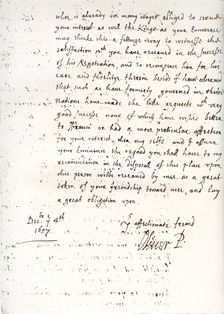 who is already soe many wayes obliged to
your interest as well the Kings as your Eminence
may thinke this a fittinge way to witnesse that
satisfaction wch you have received in the successe
of his Negotiation, and to recompence him for his
care and fidelitye therein besids I have observed
that such as have formerly governed in
nations have made the like requests wth very
good successe none of which have wished better
to France or had a more particular affection
for your interest, then my selfe and I assure
your Eminence the regard you shall have to my
recommendation in the disposall of this place upon
this person wilbe received by mee as a great
token of your friendship toward mee, and lay
a great obligation upon.
Yr affectionate freind
Decr ye 4th
1657.
Oliver P